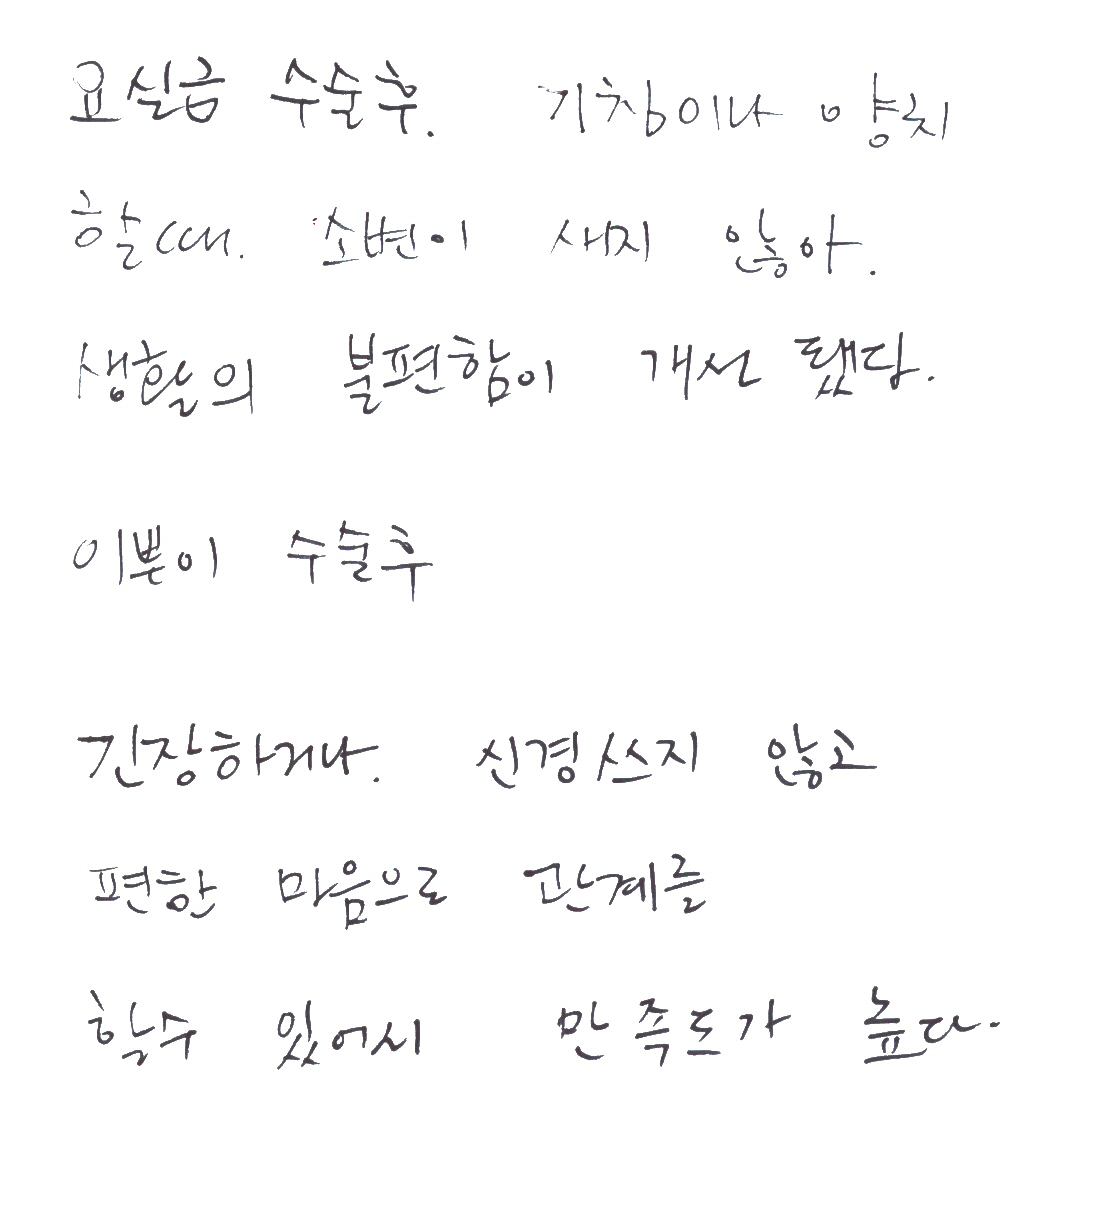 요실금 수술후. 기침이나 양치
할때. 소변이 새지 않아.
생활의 불편함이 개선 됐다.
이쁜이 수술후
긴장하거나. 신경쓰지 않고
편한 마음으로 관계를
할수 있어서 만족도가 높다.